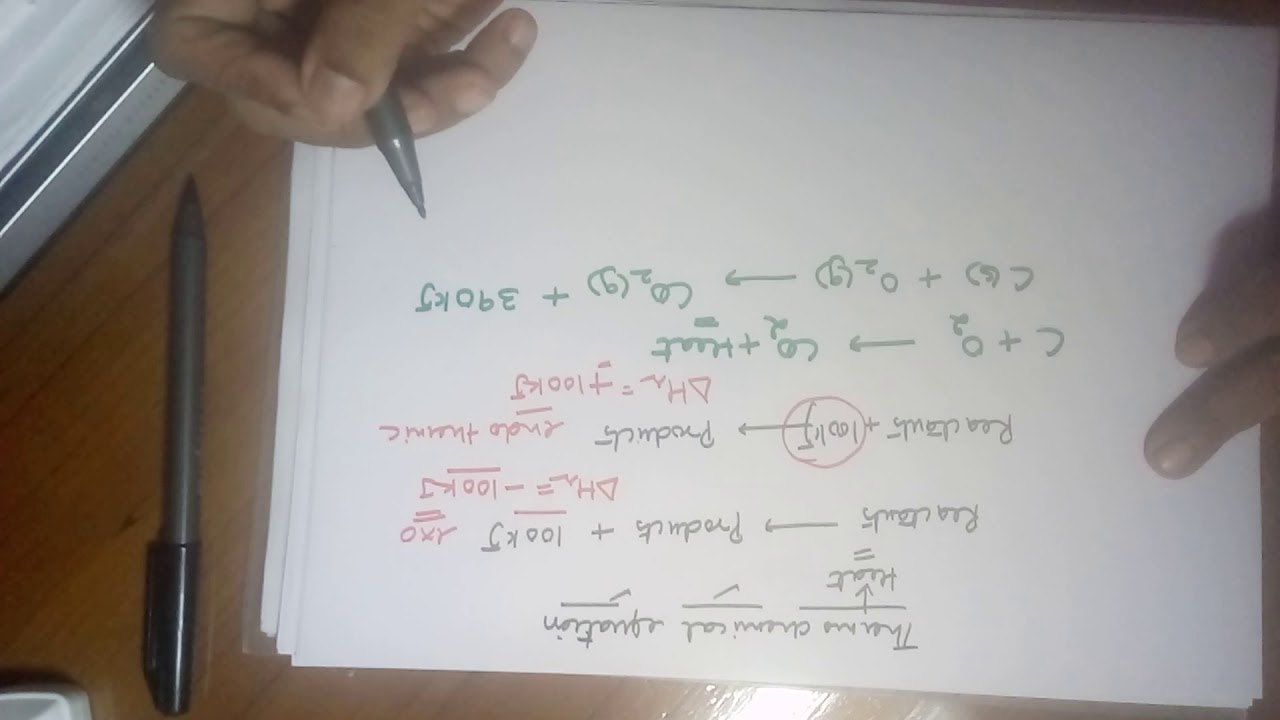 Thermo chemical equation
Heat
Reactants → Products + 100kJ exo
ΔHr = -100kJ
Reactants + 100kJ → Products endothermic
ΔHr = +100kJ
C + O2 → CO2 + Heat
C(s) + O2(g) → CO2(g) + 390kJ